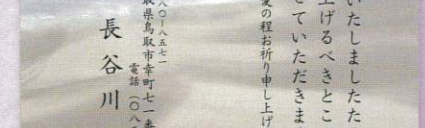 いたしましたた
上げるべきとこ
せていただきま
愛の程お祈り申し上げ
八〇‐八五七一
取県鳥取市幸町七一番
電話(〇八
長谷川